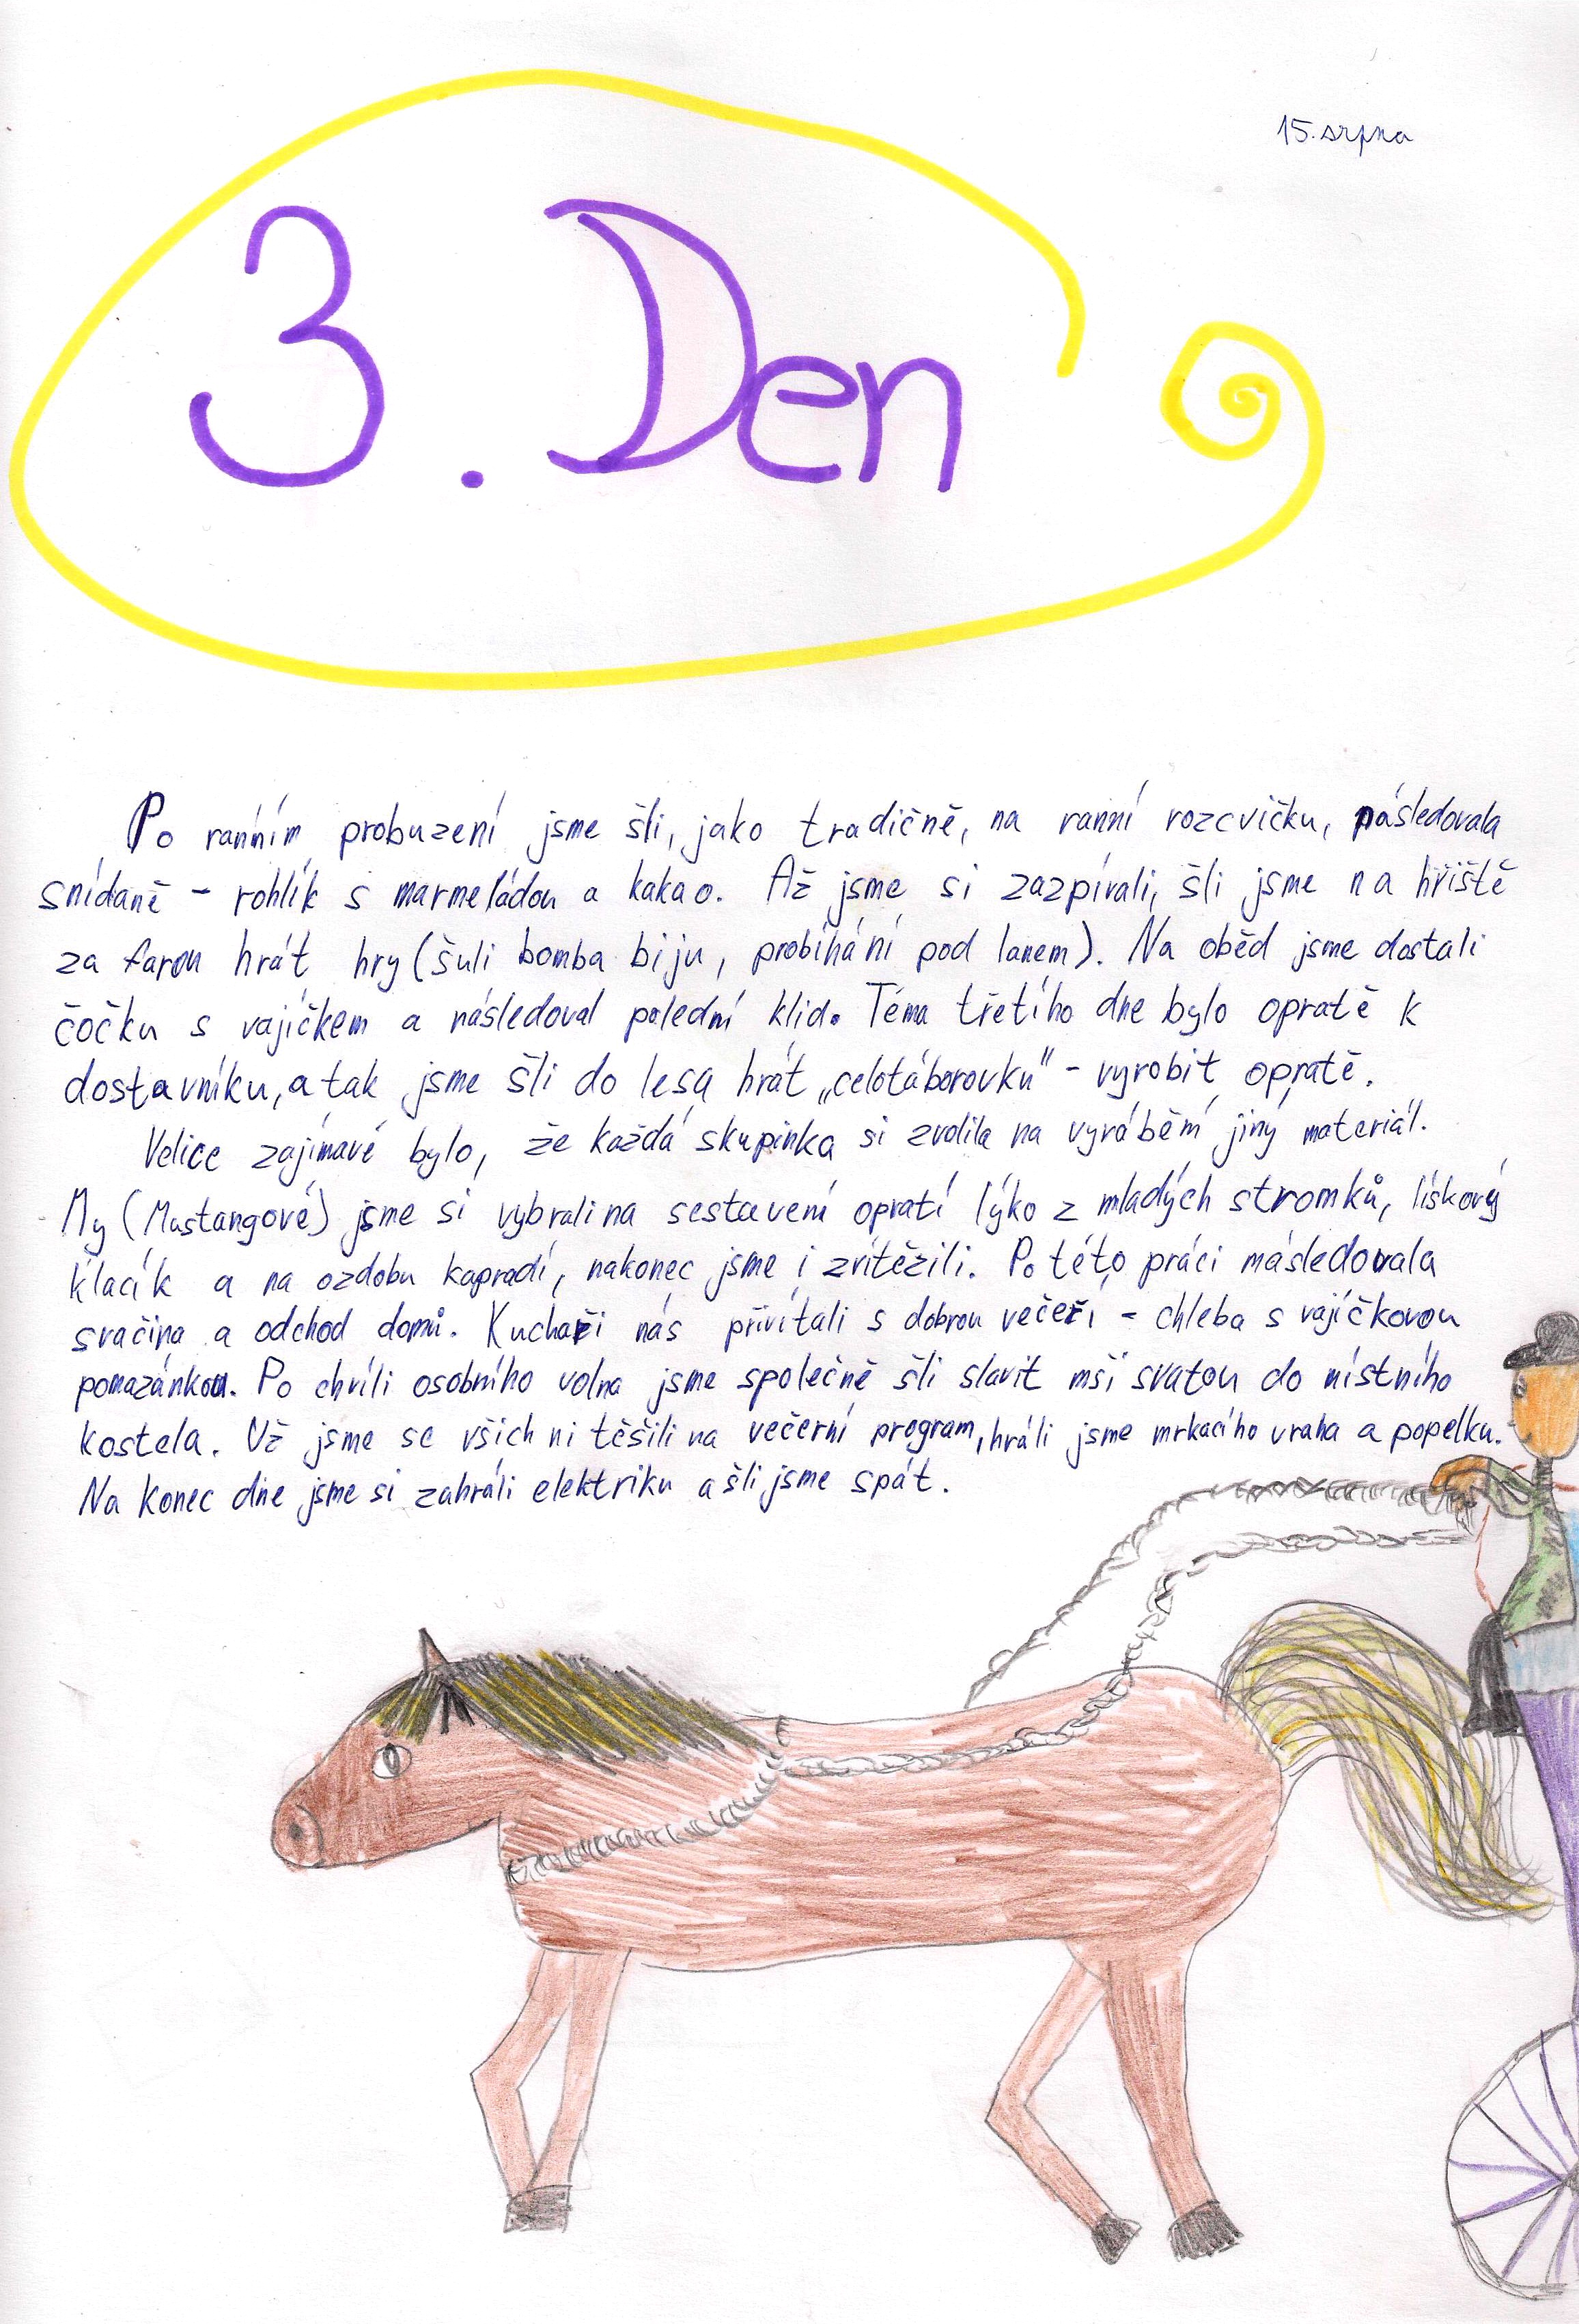 15. srpna
3. Den
Po ranním probuzení jsme šli, jako tradičně, na ranní rozcvičku, následovala
snídaně - rohlík s marmeládou a kakao. Až jsme si zazpívali, šli jsme na hřiště
za farou hrát hry (šuli bomba biju, probíhání pod lanem). Na oběd jsme dostali
čočku s vajíčkem a následoval polední klid. Téma třetího dne bylo opratě k
dostavníku, a tak jsme šli do lesa hrát „celotáborovku" - vyrobit opratě.
Velice zajímavé bylo, že každá skupinka si zvolila na vyrábění jiný materiál.
My (Mustangové) jsme si vybrali na sestavení opratí lýko z mladých stromků, lískový
klacík a na ozdobu kapradí, nakonec jsme i zvítězili. Po této práci následovala
svačina a odchod domů. Kuchaři nás přivítali s dobrou večeří - chleba s vajíčkovou
pomazánkou. Po chvíli osobního volna jsme společně šli slavit mši svatou do místního
kostela. Už jsme se všichni těšili na večerní program, hráli jsme mrkacího vraha a popelku.
Na konec dne jsme si zahráli elektriku a šli jsme spát.